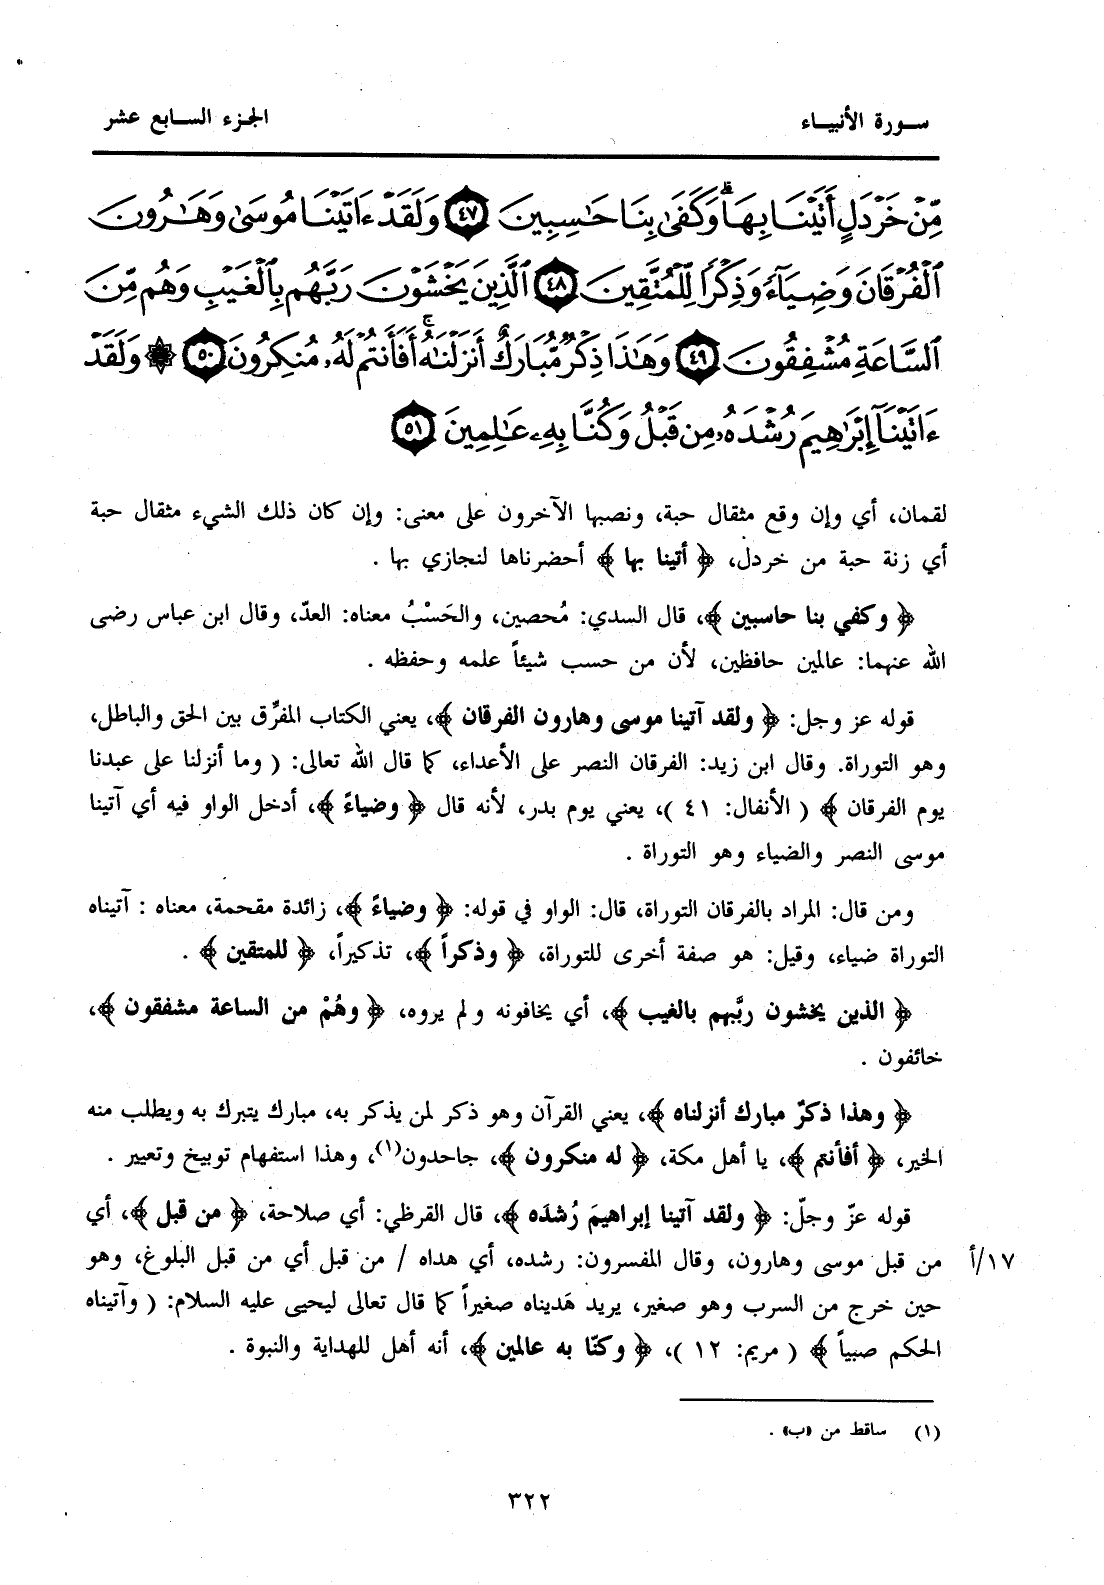 سورة الأنبياء
الجزء السابع عشر
مِّنْ خَرْدَلٍ أَتَيْنَا بِهَا ۗ وَكَفَىٰ بِنَا حَٰسِبِينَ ٤٧ وَلَقَدْ ءَاتَيْنَا مُوسَىٰ وَهَٰرُونَ
ٱلْفُرْقَانَ وَضِيَآءً وَذِكْرًا لِّلْمُتَّقِينَ ٤٨ ٱلَّذِينَ يَخْشَوْنَ رَبَّهُم بِٱلْغَيْبِ وَهُم مِّنَ
ٱلسَّاعَةِ مُشْفِقُونَ ٤٩ وَهَٰذَا ذِكْرٌ مُّبَارَكٌ أَنزَلْنَٰهُ ۚ أَفَأَنتُمْ لَهُۥ مُنكِرُونَ ٥٠ ۞ وَلَقَدْ
ءَاتَيْنَآ إِبْرَٰهِيمَ رُشْدَهُۥ مِن قَبْلُ وَكُنَّا بِهِۦ عَٰلِمِينَ ٥١
لقمان، أي وإن وقع مثقال حبة، ونصبها الآخرون على معنى: وإن كان ذلك الشيء مثقال حبة
أي زنة حبة من خردل، ﴿ أتينا بها ﴾ أحضرناها لنجازي بها .
﴿ وكفي بنا حاسبين ﴾، قال السدي: مُحصين، والحَسْبُ معناه: العدّ، وقال ابن عباس رضى
الله عنهما: عالمين حافظين، لأن من حسب شيئاً علمه وحفظه .
قوله عز وجل: ﴿ ولقد آتينا موسى وهارون الفرقان ﴾، يعني الكتاب المفرِّق بين الحق والباطل،
وهو التوراة. وقال ابن زيد: الفرقان النصر على الأعداء، كما قال الله تعالى: ( وما أنزلنا على عبدنا
يوم الفرقان ﴾ ( الأنفال: ٤١ )، يعني يوم بدر، لأنه قال ﴿ وضياءً ﴾، أدخل الواو فيه أي آتينا
موسى النصر والضياء وهو التوراة .
ومن قال: المراد بالفرقان التوراة، قال: الواو في قوله: ﴿ وضياءً ﴾، زائدة مقحمة، معناه : آتيناه
التوراة ضياء، وقيل: هو صفة أخرى للتوراة، ﴿ وذكراً ﴾، تذكيراً، ﴿ للمتقين ﴾ .
﴿ الذين يخشون ربَّهم بالغيب ﴾، أي يخافونه ولم يروه، ﴿ وهُمْ من الساعة مشفقون ﴾،
خائفون .
﴿ وهذا ذكرٌ مبارك أنزلناه ﴾، يعني القرآن وهو ذكر لمن يذكر به، مبارك يتبرك به ويطلب منه
الخير، ﴿ أفأنتم ﴾، يا أهل مكة، ﴿ له منكرون ﴾، جاحدون(١)، وهذا استفهام توبيخ وتعيير .
قوله عزّ وجلّ: ﴿ ولقد آتينا إبراهيمَ رُشدَه ﴾، قال القرظي: أي صلاحة، ﴿ من قبل ﴾، أي
من قبل موسى وهارون، وقال المفسرون: رشده، أي هداه / من قبل أي من قبل البلوغ، وهو
١٧/أ
حين خرج من السرب وهو صغير، يريد هَديناه صغيراً كما قال تعالى ليحيى عليه السلام: ( وآتيناه
الحكم صبياً ﴾ ( مريم: ١٢ )، ﴿ وكنّا به عالمين ﴾، أنه أهل للهداية والنبوة .
(١) ساقط من «ب» .
٣٢٢